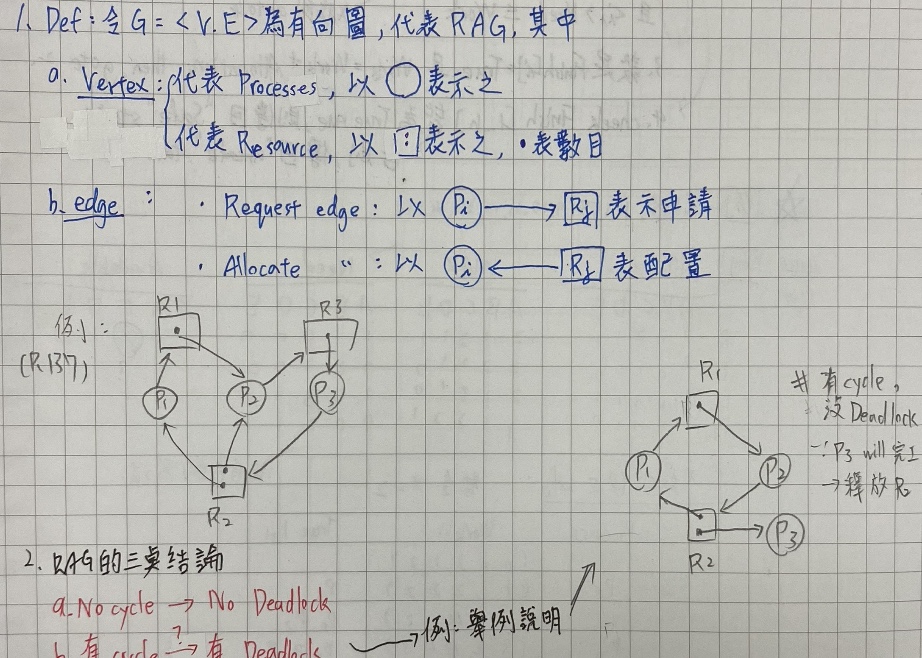 1. Def: 令 G = <V.E> 為有向圖, 代表 RAG, 其中
a. Vertex: 代表 Processes, 以 ○ 表示之
代表 Resource, 以 表示之, • 表數目
b. edge : · Request edge: 以 Pi → Rj 表示申請
· Allocate 〃 : 以 Pi ← Rj 表配置
例:
R1
R3
P1
P2
P3
R2
R1
P1
P2
P3
R2
# 有 cycle,
沒 Deadlock
∵ P3 will 完工
→ 釋放 R2
2. RAG的三點結論
a. No cycle → No Deadlock
b. 有 cycle ?→ 有 Deadlock → 例: 舉例說明